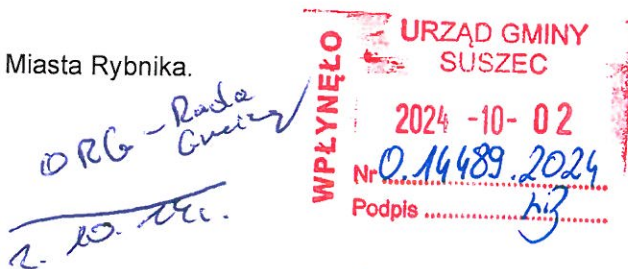 Miasta Rybnika.
ORG - Rada
Gminy
2. 10. 24r.
WPŁYNĘŁO
URZĄD GMINY
SUSZEC
2024 -10- 02
Nr 0.14489.2024
Podpis